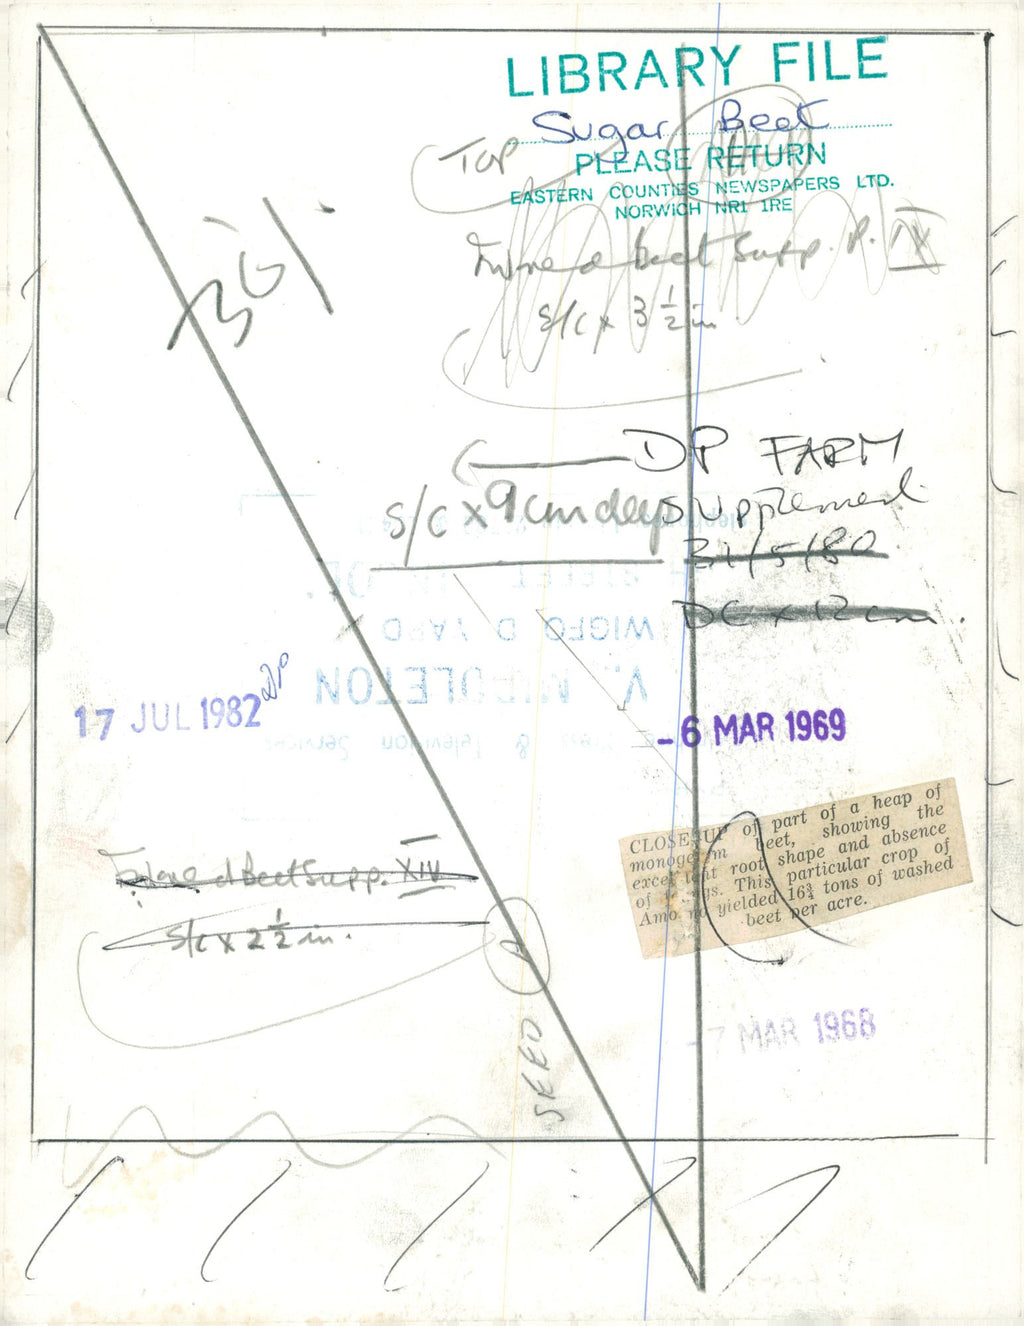 LIBRARY FILE
Sugar Beet
TOP
PLEASE RETURN
EASTERN COUNTIES NEWSPAPERS LTD.
NORWICH NR1 1RE
Beet Supp. P. IX
S/C x 3 1/2 in
DP FARM
supplement
S/C x 9cm deep
31/5/80
DC x 12 cm.
V. MIDDLETON
& Television Services
17 JUL 1982
DP
-6 MAR 1969
CLOSE-UP of part of a heap of
monogerm beet, showing the
excellent root shape and absence
of fangs. This particular crop of
Amono yielded 16¾ tons of washed
beet per acre.
Beet Supp. XIV
S/C x 2 1/2 in.
A
SEED
-7 MAR 1968